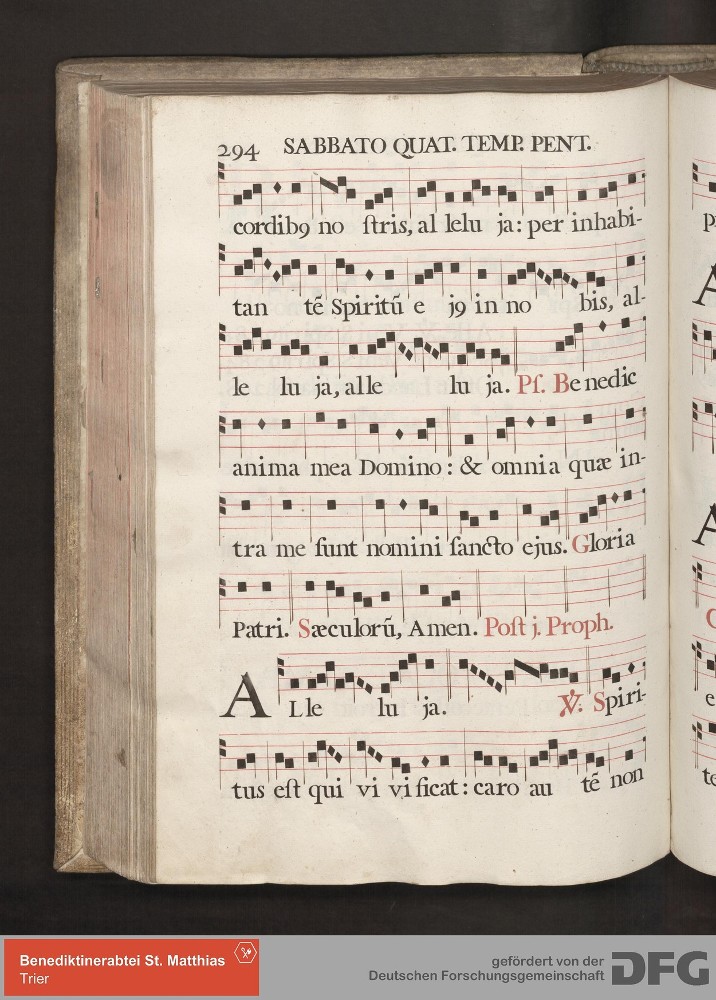 294 SABBATO QUAT. TEMP. PENT.
cordib9 no ſtris, al lelu ja: per inhabi-
tan tẽ Spiritũ e j9 in no bis, al-
le lu ja, alle lu ja. Pſ. Benedic
anima mea Domino: & omnia quæ in-
tra me ſunt nomini ſancto ejus. Gloria
Patri. Sæculorũ, Amen. Poſt j. Proph.
ALle lu ja. ℣. Spiri-
tus eſt qui vi vificat: caro au tẽ non
Benediktinerabtei St. Matthias
Trier
gefördert von der
Deutschen Forschungsgemeinschaft
DFG